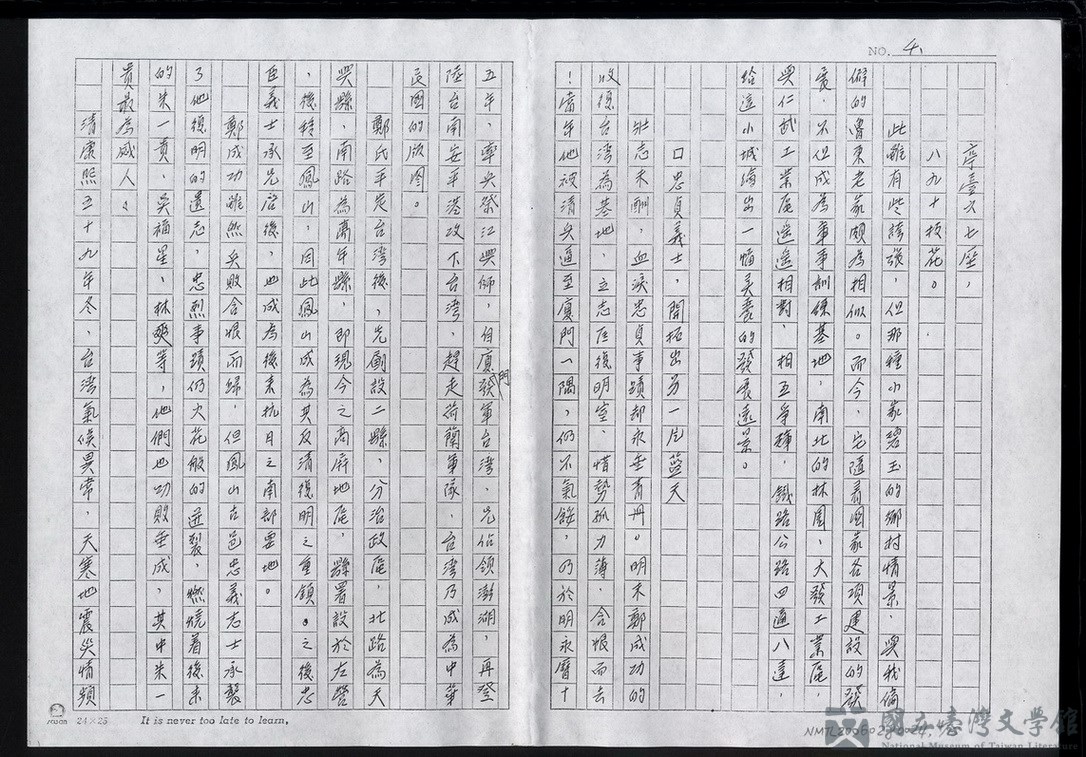 NO. 4.
亭臺六七座，
八九十枝花。
此雖有些誇張，但那種小家碧玉的鄉村情景，與我偏
僻的魯東老家頗為相似。而今，它隨着國家各項建設的發
展，不但成為軍事訓練基地，南北的林園、大發工業區，
與仁武工業區遙遙相對，相互爭輝，鐵路公路四通八達，
給這小城繪出一幅美麗的發展遠景。
口忠貞義士，開拓出另一片藍天
壯志未酬，血淚忠貞事蹟却永垂青丹。明末鄭成功的
收復台灣為基地，立志匡復明室，惜勢孤力薄，含恨而去
！當年他被清兵逼至廈門一隅，仍不氣餒，乃於明永曆十
五年，率兵於江興師，自廈門發軍台灣，先佔領澎湖，再登
陸台南安平港攻下台灣，趕走荷蘭軍隊，台灣乃成為中華
民國的版圖。
鄭氏平定台灣後，先劃設二縣，分治政區，北路為天
興縣，南路為萬年縣，即現今之高屏地區，縣署設於左營
，後移至鳳山，因此鳳山成為其反清復明之重鎮。之後忠
臣義士承先啓後，也成為後來抗日之南部要地。
鄭成功雖然兵敗含恨而歸，但鳳山古邑忠義志士承襲
了他復明的遺志，忠烈事蹟仍火花般的迸裂，燃燒着後來
的朱一貴，吳福星，林爽等，他們也功敗垂成，其中朱一
貴最為感人。
清康熙五十九年冬，台灣氣候異常，天寒地震災情頻
24×25
It is never too late to learn.
NMTL20060280024
國立臺灣文學館
National Museum of Taiwan Literature